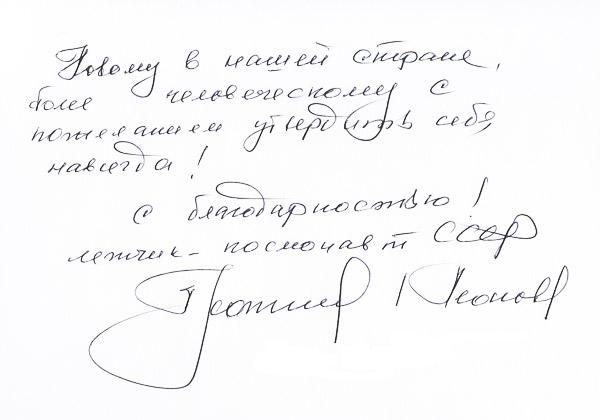 Новому в нашей стране,
более человеческому с
пожеланием утвердить себя
навсегда!
С благодарностью!
летчик-космонавт СССР